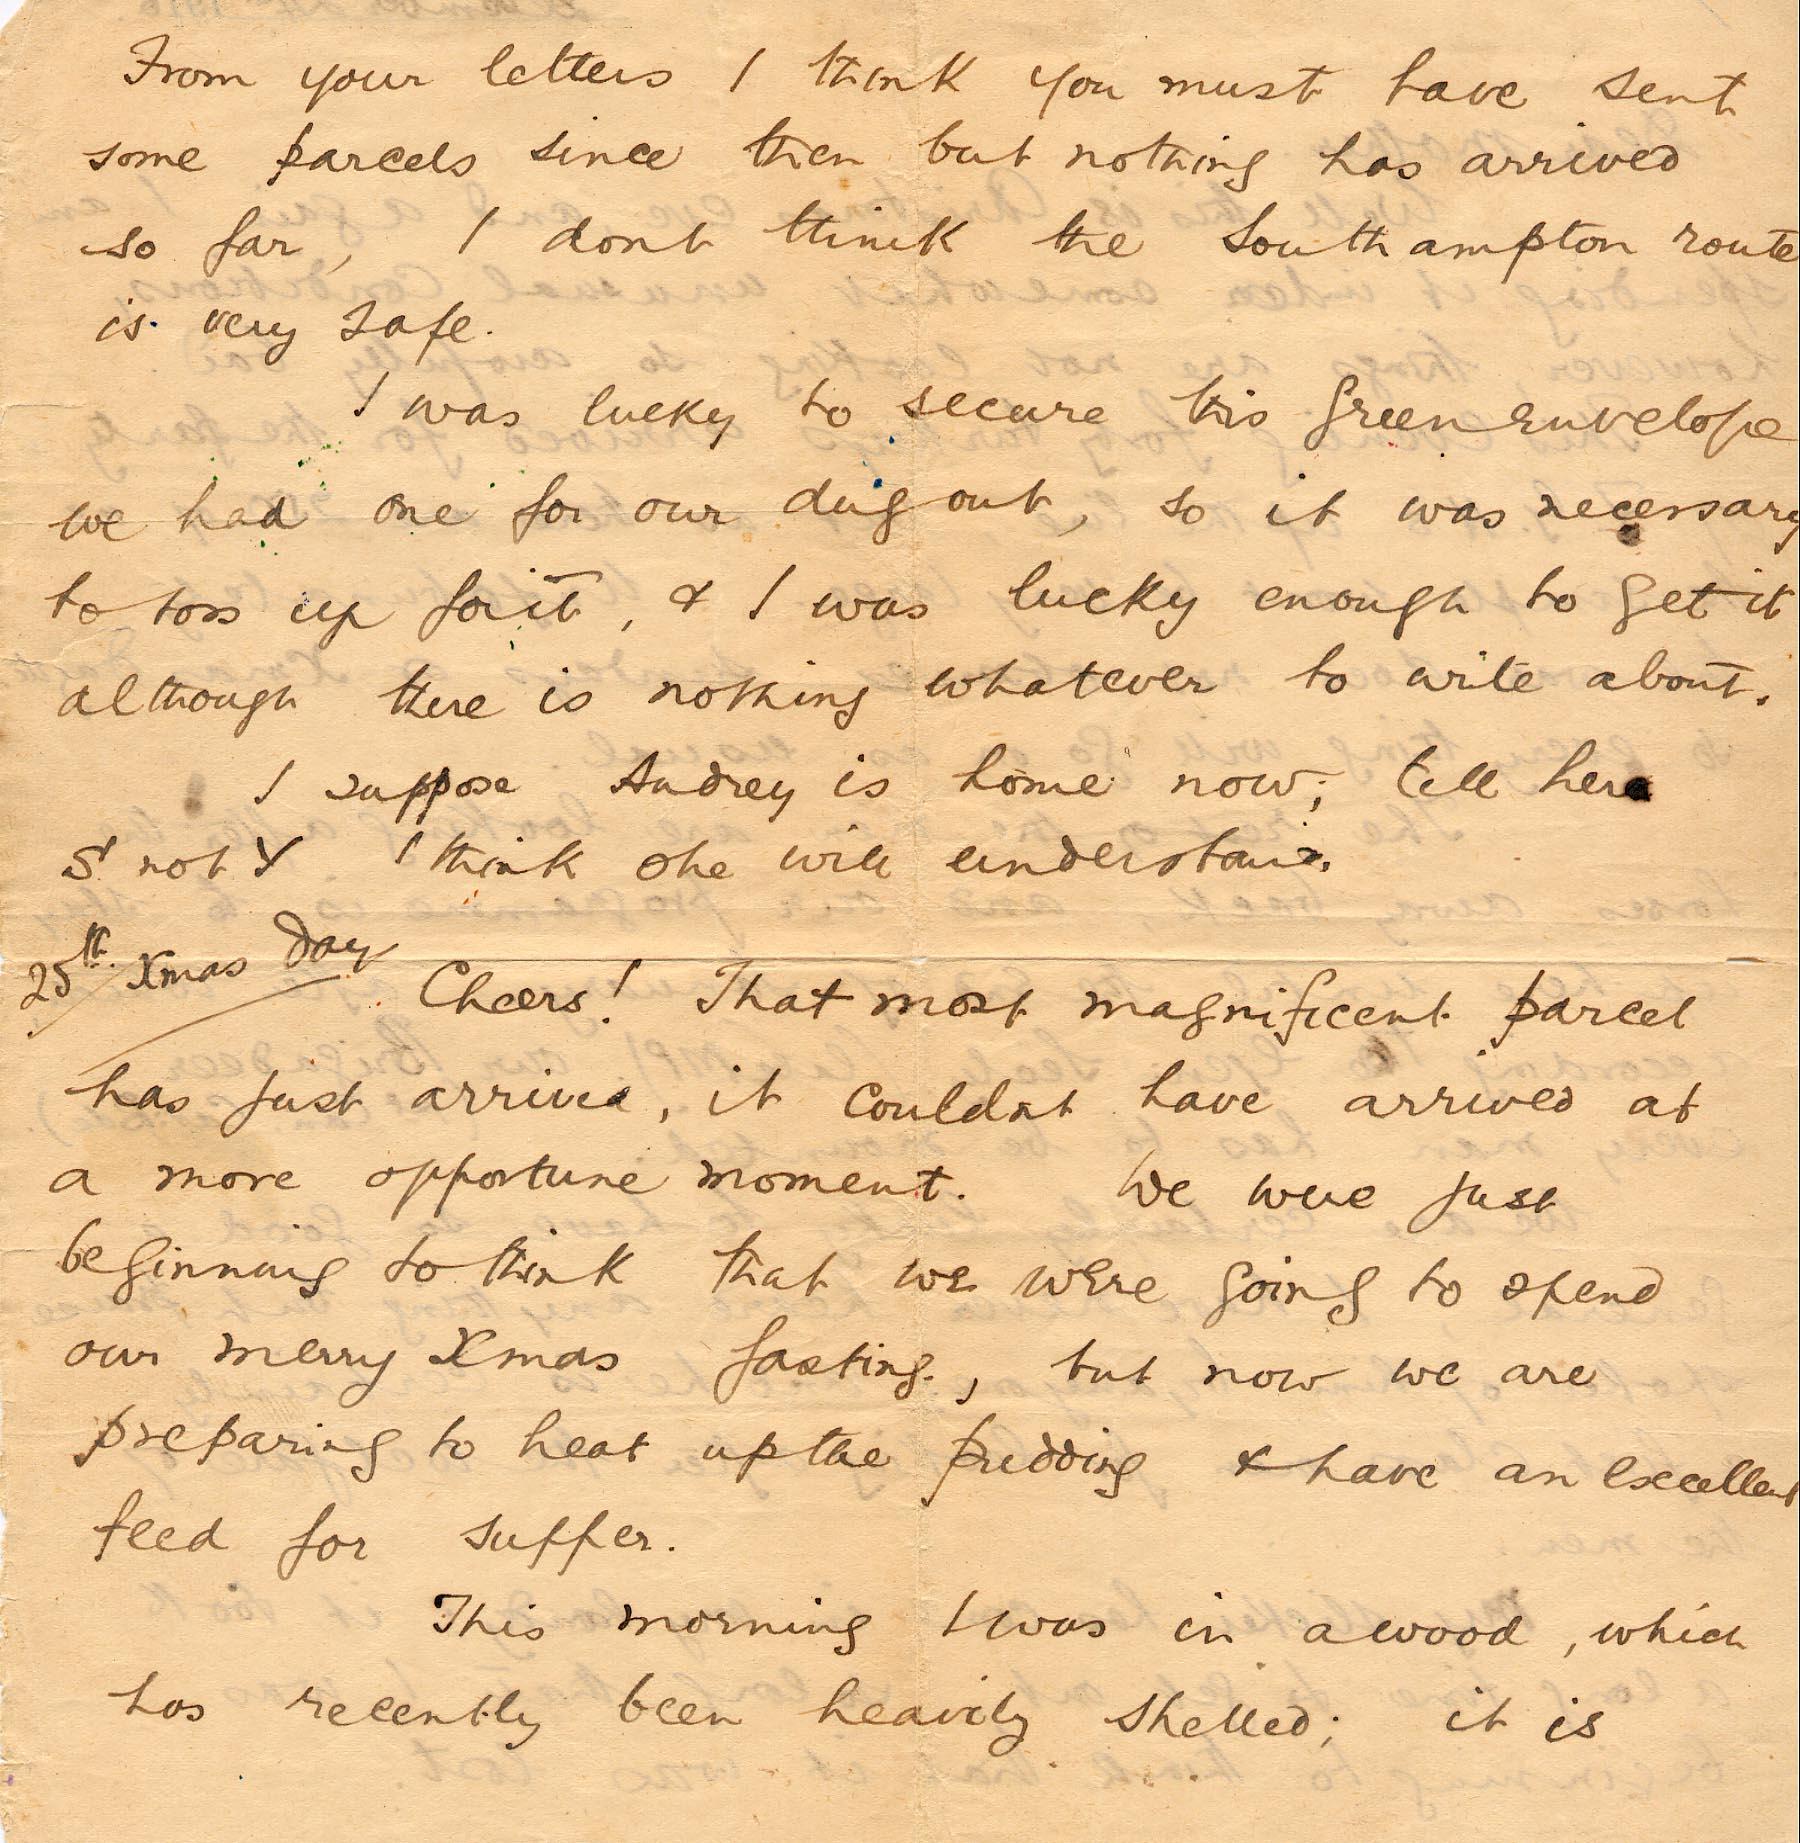 From your letters I think you must have sent
some parcels since then but nothing has arrived
so far, I dont think the Southampton route
is very safe.
I was lucky to secure this green envelope
we had one for our dug out, so it was necessary
to toss up for it, & I was lucky enough to get it
although there is nothing whatever to write about.
I suppose Audrey is home now; tell her
S not Y I think she will understand.
25th Xmas Day
Cheers! That most magnificent parcel
has just arrived, it couldnt have arrived at
a more opportune moment. We were just
beginning to think that we were going to spend
our merry Xmas fasting, but now we are
preparing to heat up the pudding & have an excellent
feed for supper.
This morning I was in a wood, which
has recently been heavily shelled; it is